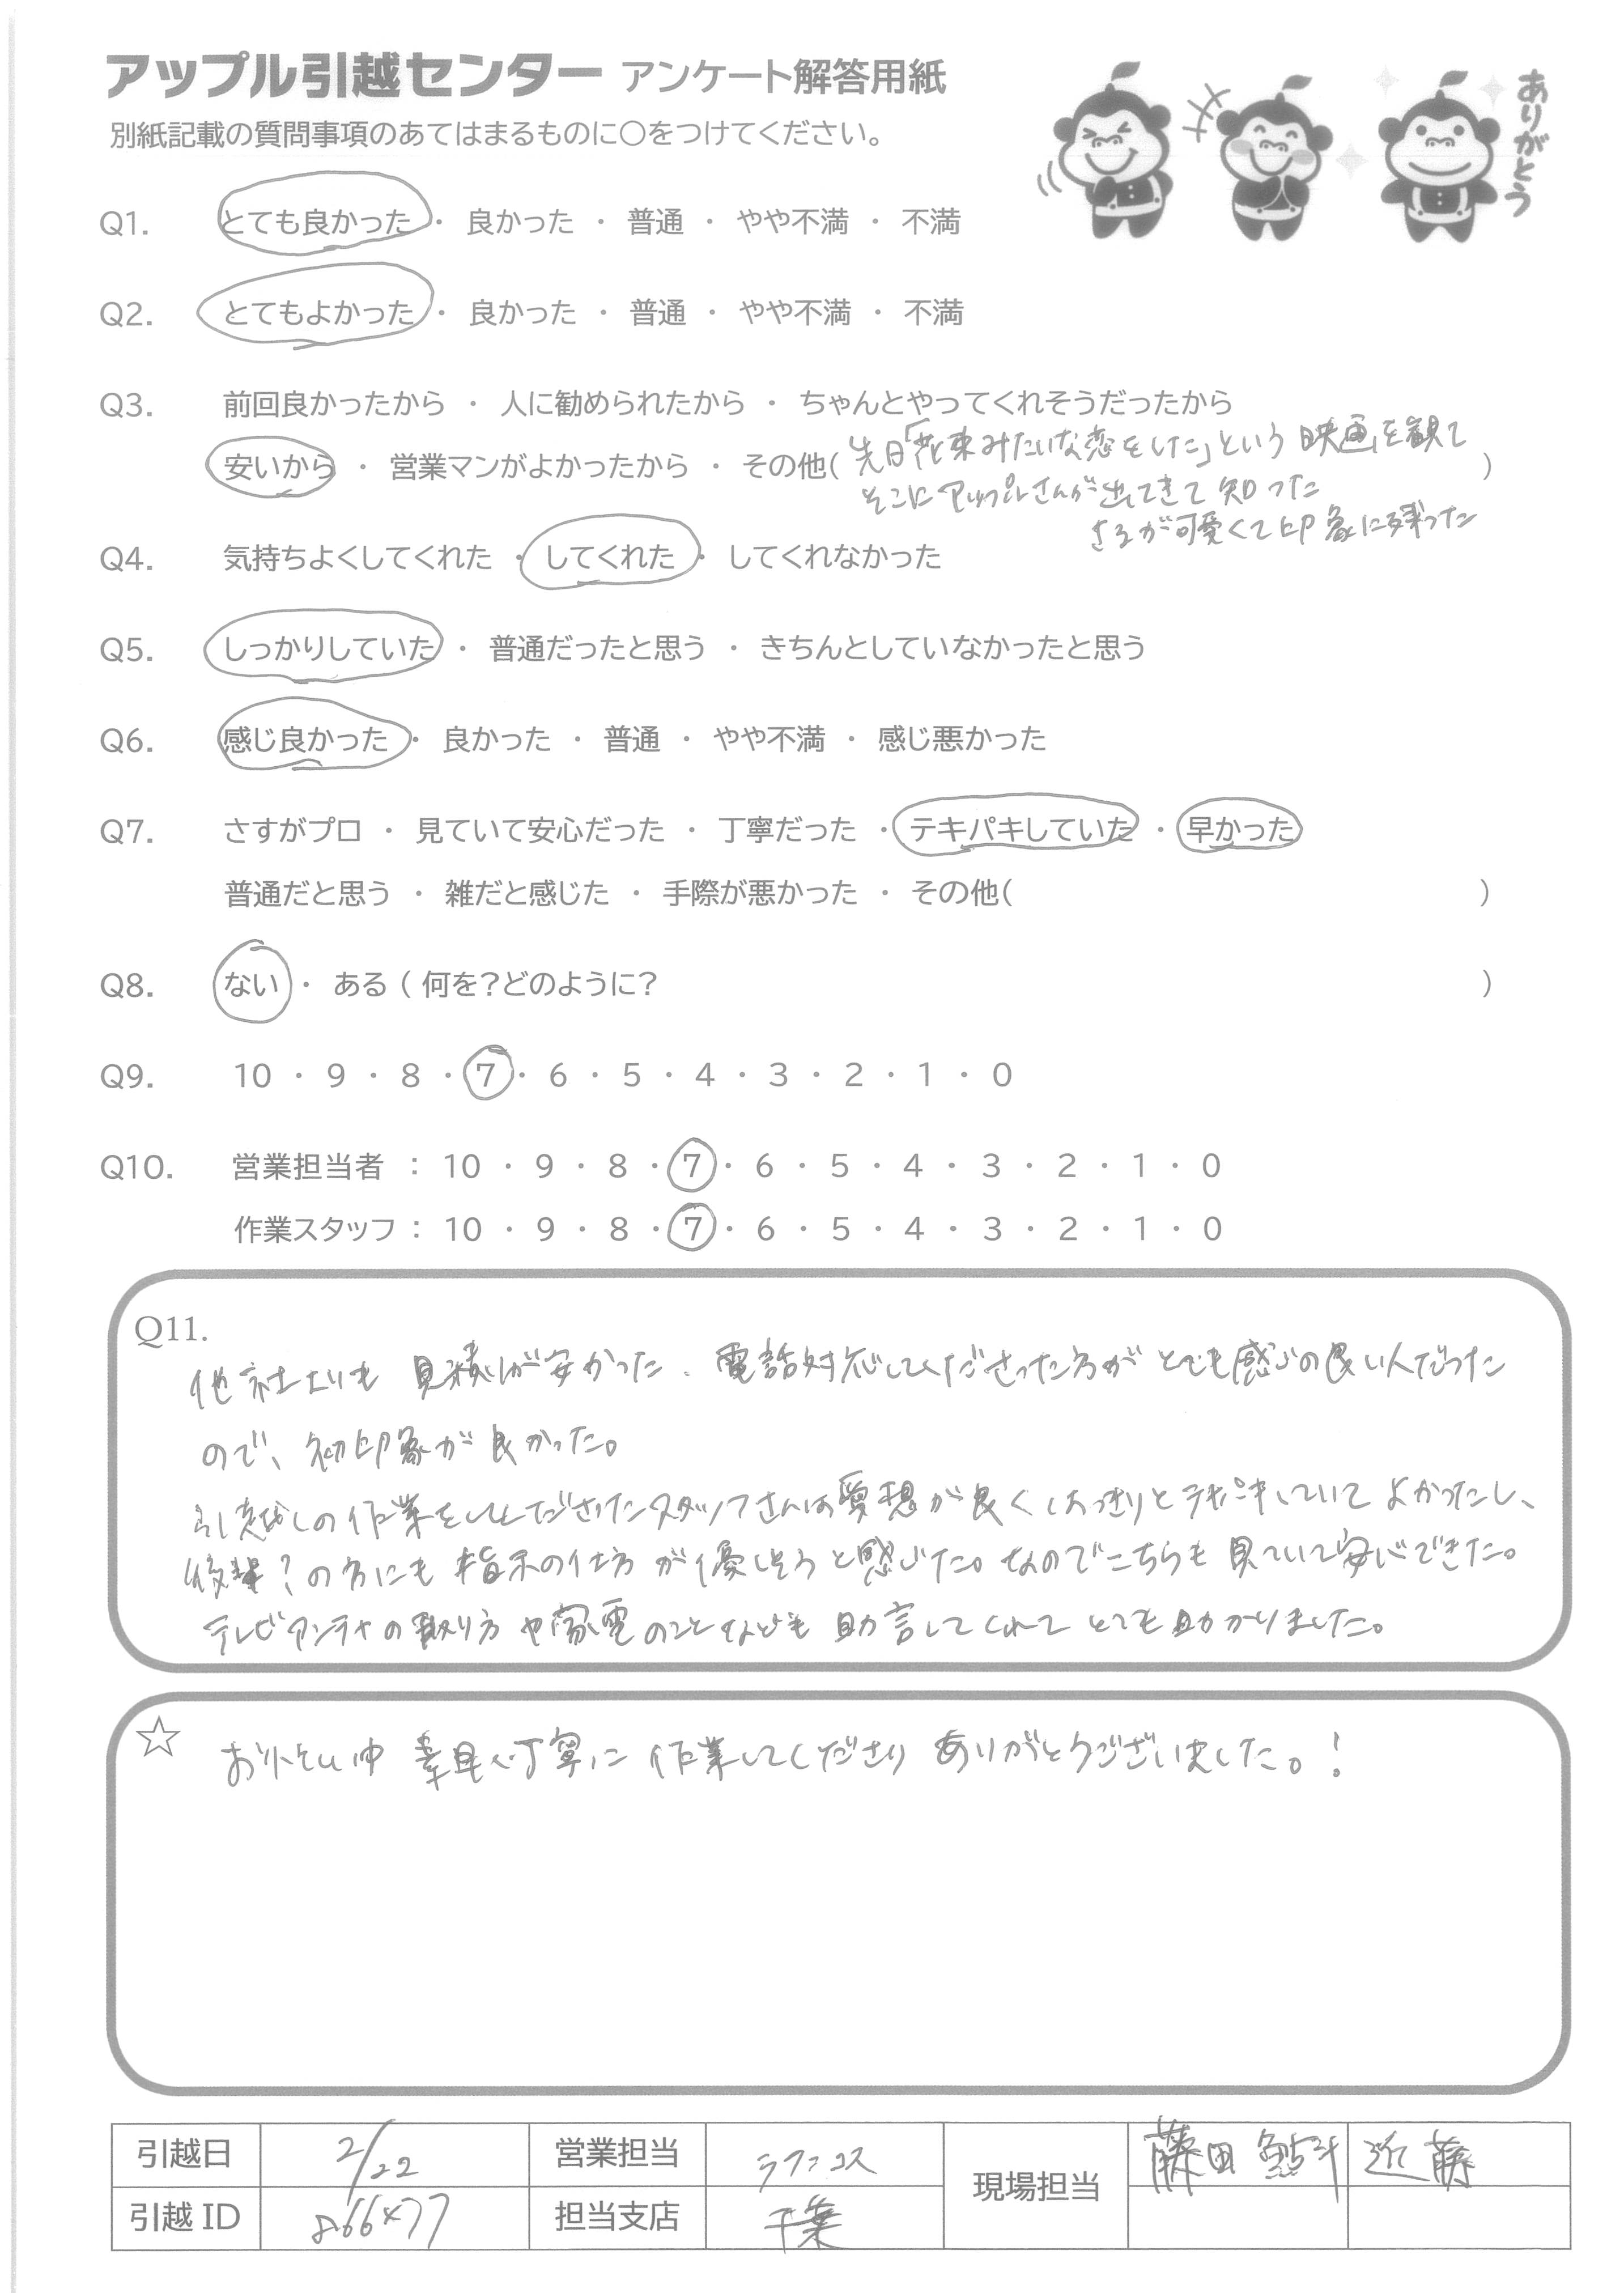 アップル引越センター アンケート解答用紙
別紙記載の質問事項のあてはまるものに○をつけてください。
ありがとう
Q1. とても良かった ・ 良かった ・ 普通 ・ やや不満 ・ 不満
Q2. とてもよかった ・ 良かった ・ 普通 ・ やや不満 ・ 不満
Q3. 前回良かったから ・ 人に勧められたから ・ ちゃんとやってくれそうだったから
安いから ・ 営業マンがよかったから ・ その他( 先日「花束みたいな恋をした」という映画を観て )
そこにアップルさんが出てきて知った
さるが可愛くて印象に残った
Q4. 気持ちよくしてくれた ・ してくれた ・ してくれなかった
Q5. しっかりしていた ・ 普通だったと思う ・ きちんとしていなかったと思う
Q6. 感じ良かった ・ 良かった ・ 普通 ・ やや不満 ・ 感じ悪かった
Q7. さすがプロ ・ 見ていて安心だった ・ 丁寧だった ・ テキパキしていた ・ 早かった
普通だと思う ・ 雑だと感じた ・ 手際が悪かった ・ その他( )
Q8. ない ・ ある ( 何を?どのように? )
Q9. 10 ・ 9 ・ 8 ・ 7 ・ 6 ・ 5 ・ 4 ・ 3 ・ 2 ・ 1 ・ 0
Q10. 営業担当者 : 10 ・ 9 ・ 8 ・ 7 ・ 6 ・ 5 ・ 4 ・ 3 ・ 2 ・ 1 ・ 0
作業スタッフ : 10 ・ 9 ・ 8 ・ 7 ・ 6 ・ 5 ・ 4 ・ 3 ・ 2 ・ 1 ・ 0
Q11.
他社よりも 見積が安かった、電話対応してくださった方がとても感じの良い人だった
ので、初印象が良かった。
引越しの作業をしてくださったスタッフさんは愛想が良くはっきりとテキパキしていてよかったし、
後輩?の方にも指示の仕方が優しそうと感じた。なのでこちらも見ていて安心できた。
テレビアンテナの取り方や家電のことなども助言してくれてとても助かりました。
☆ おいそがしい中 素早く丁寧に作業してくださりありがとうございました。!
引越日 2/22 営業担当 現場担当 藤田 近藤
引越 ID 866477 担当支店 千葉